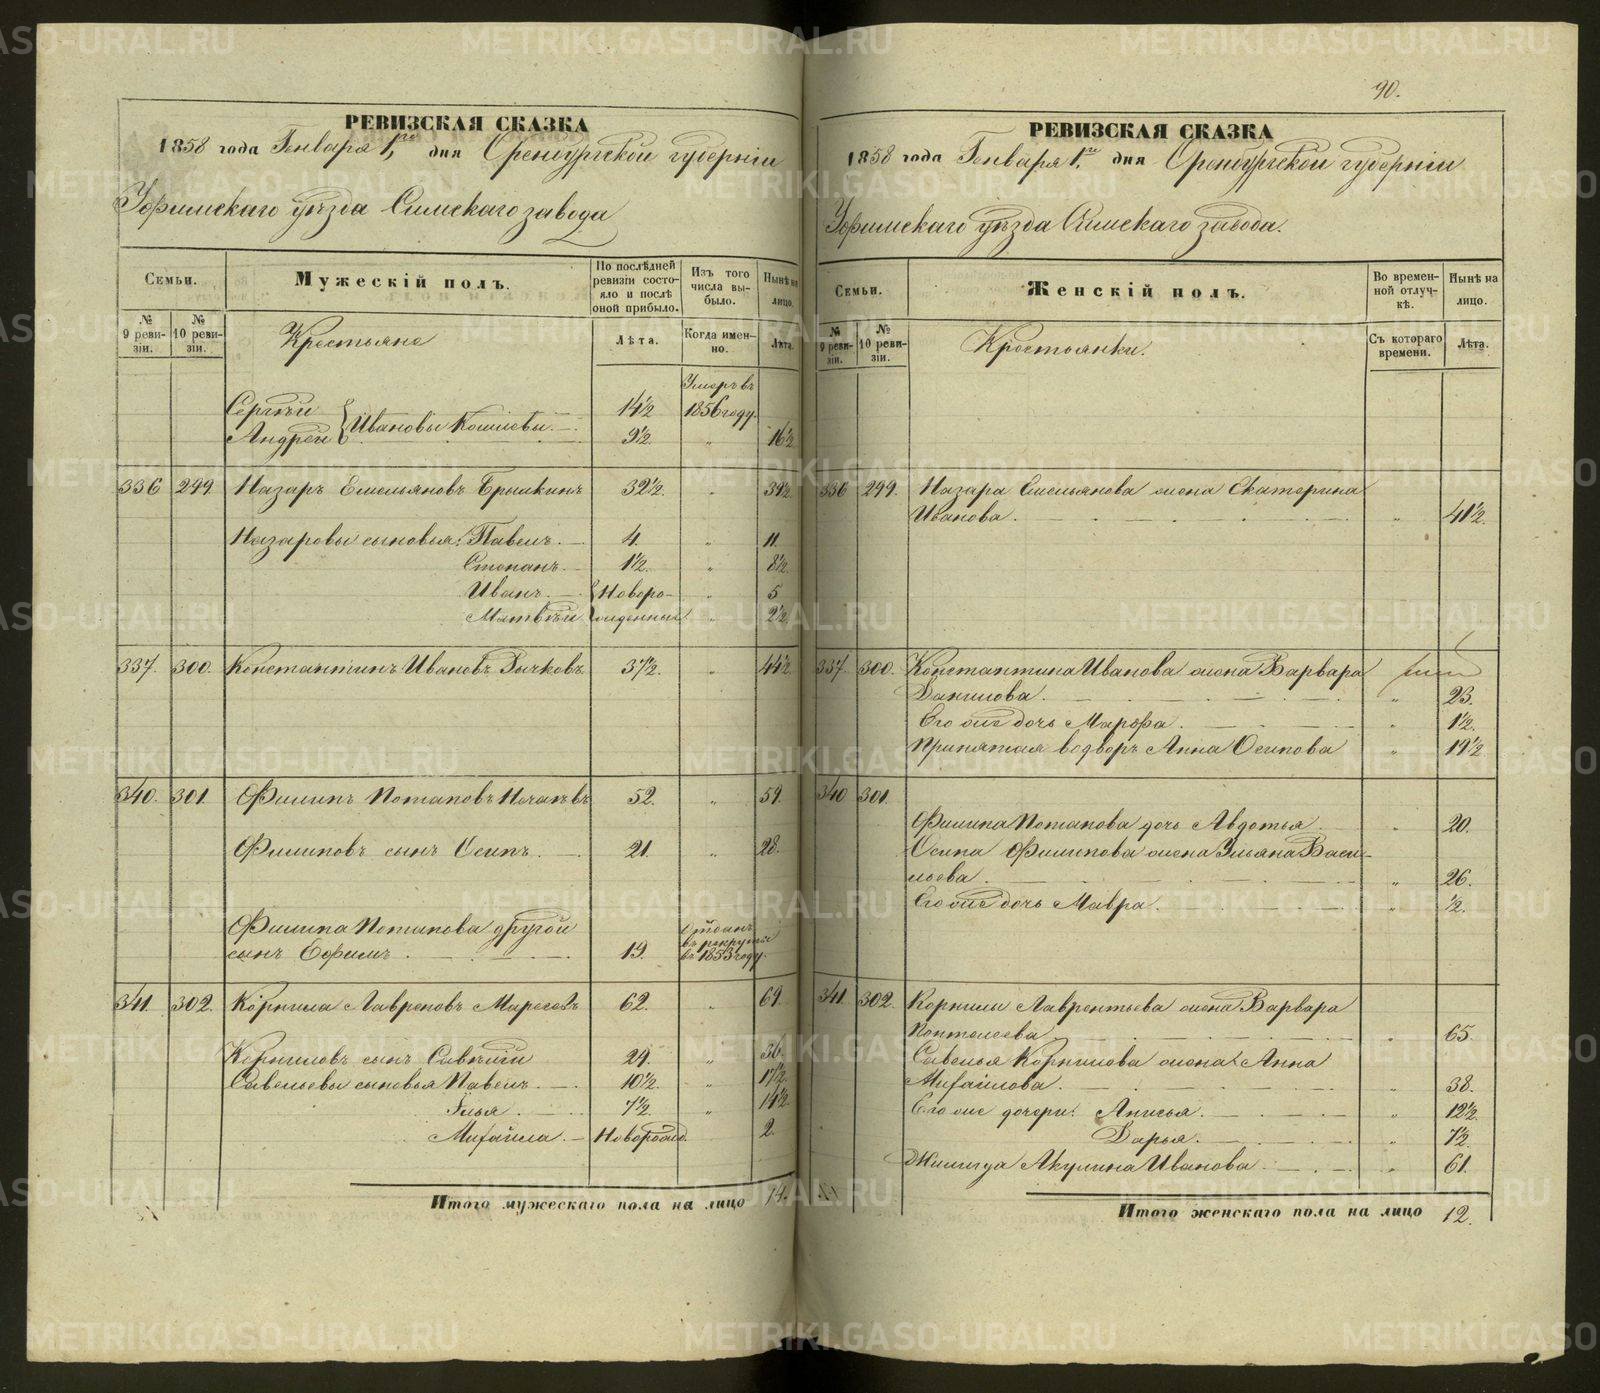 РЕВИЗСКАЯ СКАЗКА
1858 года Генваря 1го дня Оренбургской губерніи
Уфимскаго уѣзда Симскаго завода
Семьи.
Мужескій полъ.
По послѣдней ревизіи состояло и послѣ оной прибыло.
Изъ того числа выбыло.
Нынѣ на лицо.
№ 9 ревизіи.
№ 10 ревизіи.
Крестьяне
Лѣта.
Когда именно.
Лѣта.
Умеръ въ
Сергѣй 14½ 1856 году.
Андрей Ивановы 9½ " 16½
336 299 Назаръ Емельяновъ 32½. " 39½
Назаровы сыновья: Павелъ. 4. " 11.
Степанъ. 1½. " 8½.
Иванъ. Новоро- " 5
Матвѣй жденные " 2½
337. 300. Константинъ Ивановъ Рычковъ. 37½. " 44½
340. 301. Филипъ Потаповъ 52. " 59.
Филиповъ сынъ Осипъ. 21. " 28.
Филипа Потапова другой Отданъ
сынъ Ефимъ. 19. въ рекруты въ 1853 году.
341. 302. Корнила Лавреновъ 62. " 69.
Корниловъ сынъ Савелій 29. " 36.
Савельевы сыновья Павелъ. 10½. " 17½.
Илья. 7½. " 14½
Михайла. Новорожд. 2.
Итого мужескаго пола на лицо 14.
90.
РЕВИЗСКАЯ СКАЗКА
1858 года Генваря 1го дня Оренбургской губерніи
Уфимскаго уѣзда Симскаго завода.
Семьи.
Женскій полъ.
Во временной отлучкѣ.
Нынѣ на лицо.
№ 9 ревизіи.
№ 10 ревизіи.
Крестьянки.
Съ котораго времени.
Лѣта.
336 299. Назара Емельянова жена Екатерина
Иванова. " 41½.
337. 300. Константина Иванова жена Варвара
Данилова. " 23.
Его же дочь Марфа. " 1½.
Принятая во дворъ Анна Осипова " 19½
340 301.
Филипа Потапова дочь Авдотья " 20.
Осипа Филипова жена Ульяна Васи-
льева. " 26.
Его же дочь Мавра. " ½.
341. 302. Корнилы Лаврентьева жена Варвара
Понтелеева " 65.
Савелья Корнилова жена Анна
Михайлова. " 38.
Его же дочери: Анисья. " 12½.
Дарья. " 7½.
Жилица Акулина Иванова " 61.
Итого женскаго пола на лицо 12.
METRIKI.GASO-URAL.RU